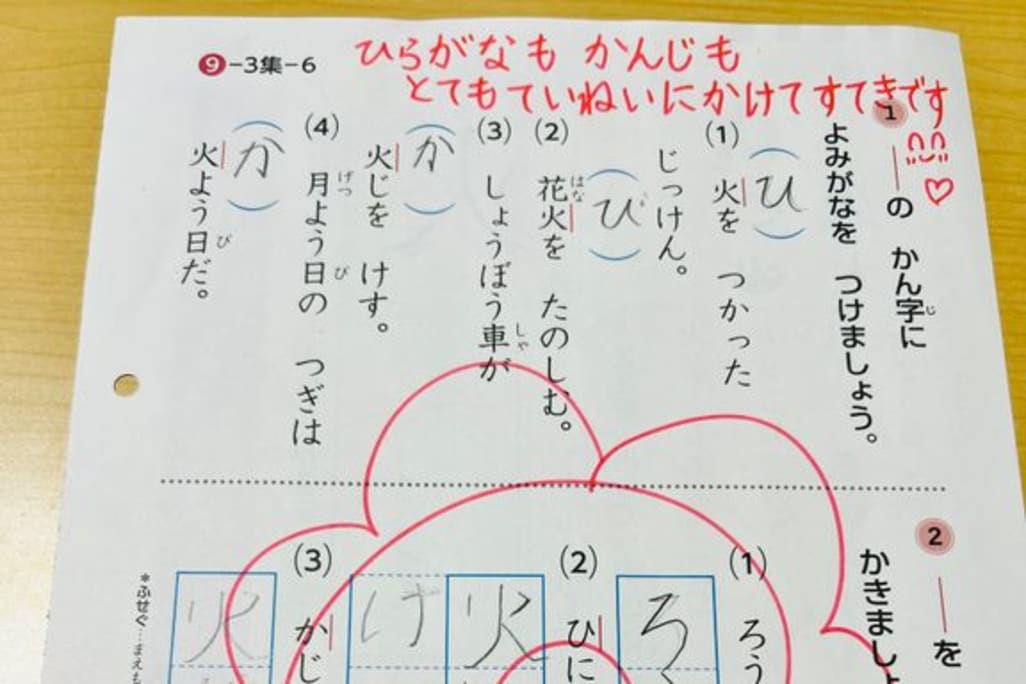 ❾-3集-6
ひらがなも かんじも
とてもていねいにかけてすてきです
1 ――の かん字に
じ
よみがなを つけましょう。
(1) 火を つかった
ひ
じっけん。
(2) 花火を たのしむ。
はな
び
(3) しょうぼう車が
しゃ
火じを けす。
か
(4) 月よう日の つぎは
げつ
び
火よう日だ。
び
か
2 ――を
かきましょ
(1) ろう
ろ
(2) ひに
火け
(3) かじ
火
*ふせぐ…まえも